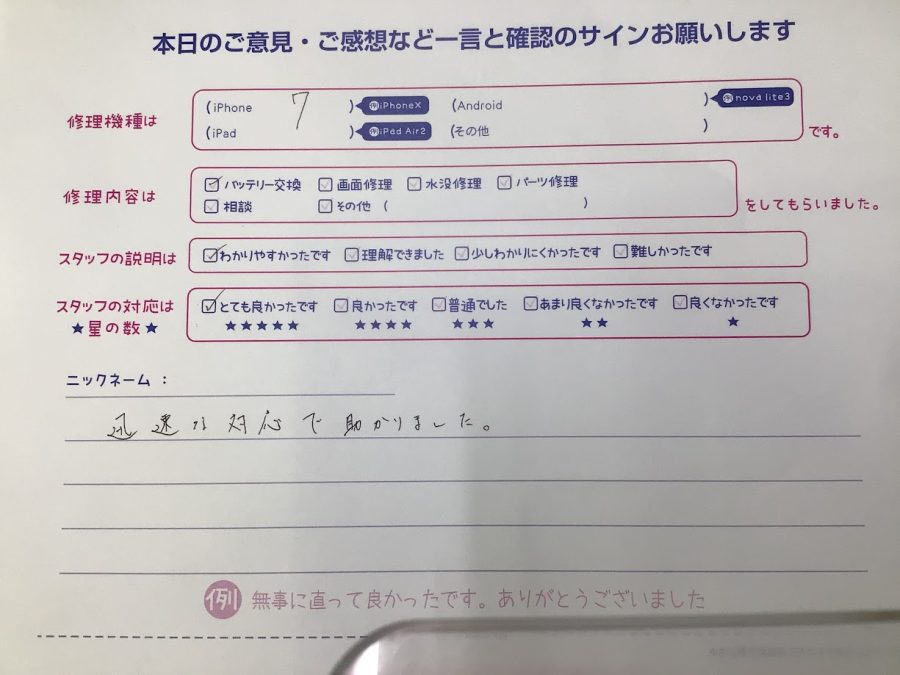 本日のご意見・ご感想など一言と確認のサインお願いします
修理機種は
(iPhone 7 ) 例iPhoneX (Android ) 例nova lite3
(iPad ) 例iPad Air2 (その他 ) です。
修理内容は
バッテリー交換 画面修理 水没修理 パーツ修理
相談 その他 ( ) をしてもらいました。
スタッフの説明は わかりやすかったです 理解できました 少しわかりにくかったです 難しかったです
スタッフの対応は とても良かったです 良かったです 普通でした あまり良くなかったです 良くなかったです
★星の数★ ★★★★★ ★★★★ ★★★ ★★ ★
ニックネーム：
迅速な対応で助かりました。
例 無事に直って良かったです。ありがとうございました